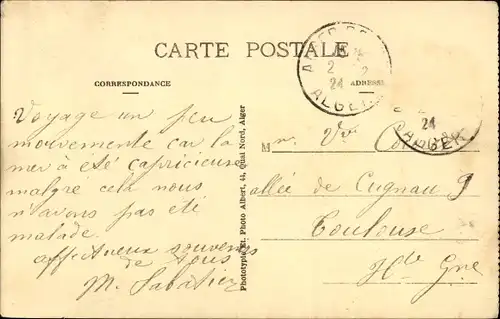 CARTE POSTALE
CORRESPONDANCE
ADRESSE
Voyage un peu
mouvementé car la
mer a été capricieuse
malgré cela nous
n'avons pas été
malade.
affectueux souvenirs
de tous
M. Sabatier
Phototypie Et. Photo Albert, 44, Quai Nord, Alger
24
ALGER
24
ALGER
M
allée de Cugnau 9
Toulouse
Hte Gne